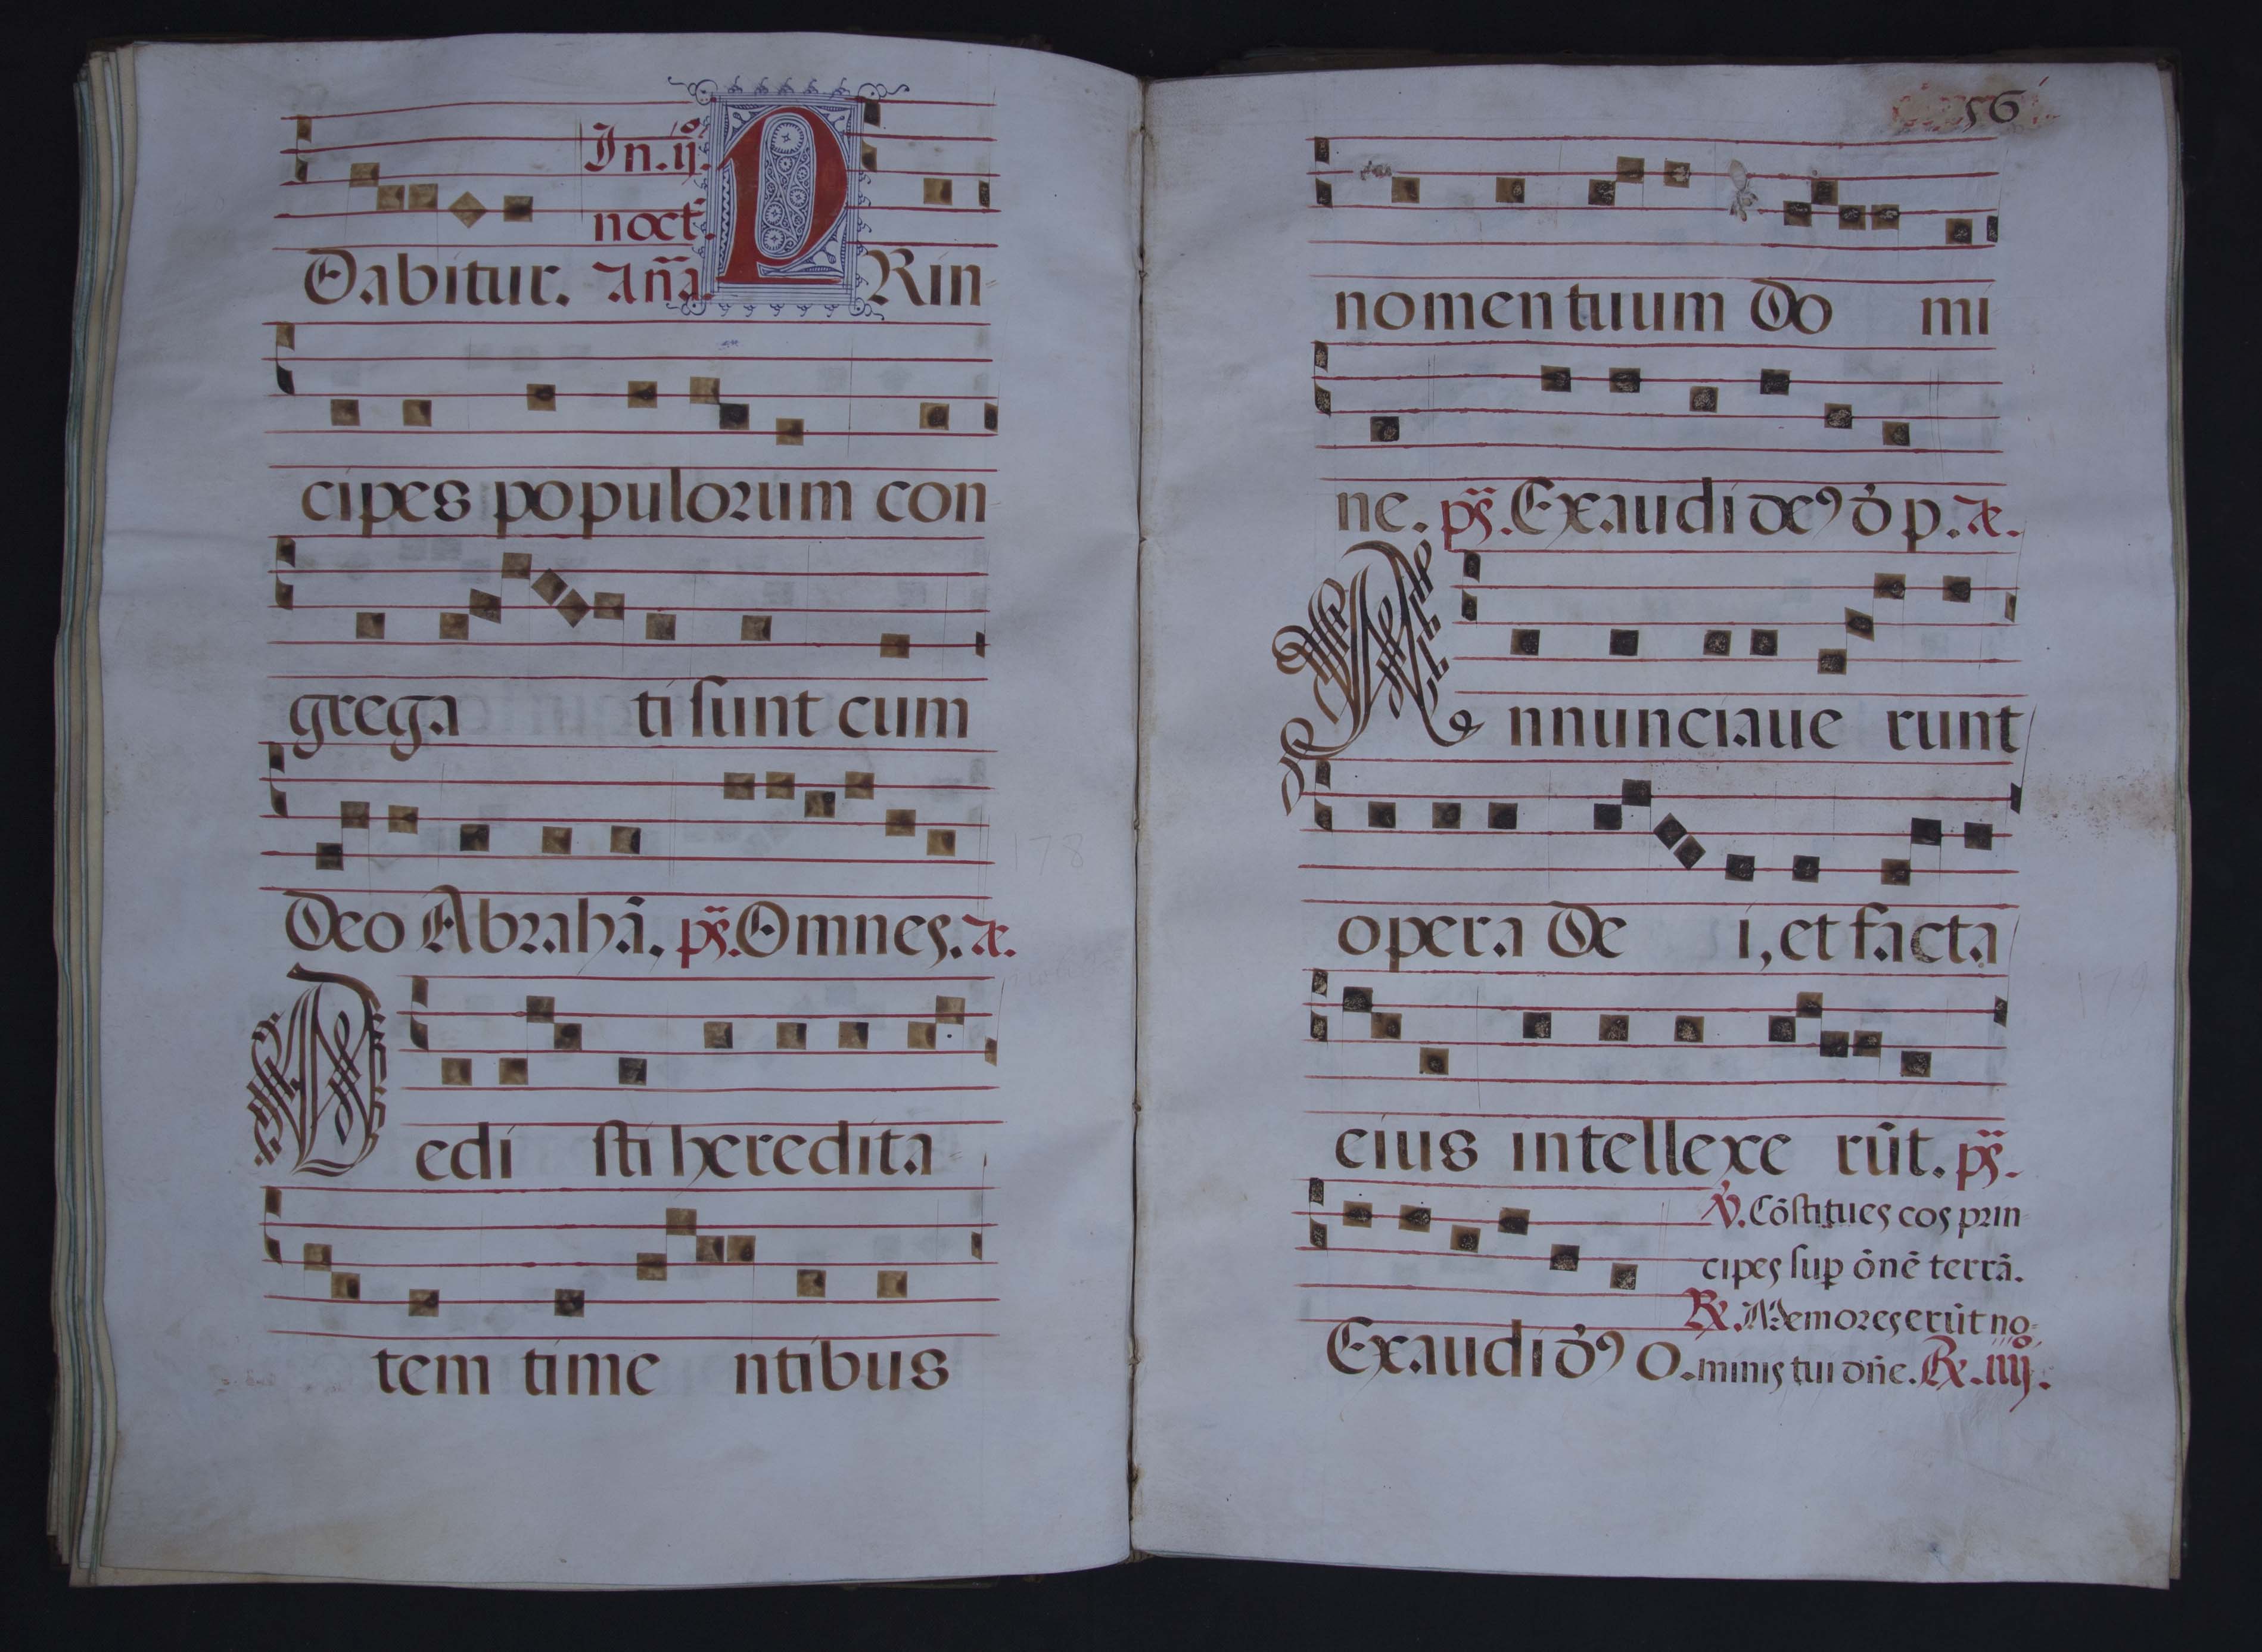 In. ij.
noct.
Dabitur. Añа. PRin
cipes populorum con
grega ti sunt cum
Deo Abrahã. ps. Omnes. æ.
Dedi sti heredita
tem time ntibus
178
56
nomen tuum Do mi
ne. ps. Exaudi deꝰ ð p. æ.
Annunciaue runt
opera De i, et facta
eius intellexe rũt. ps.
℣. Cõstitues eos prin
cipes sup õnẽ terrã.
℟. Memores erũt no-
Exaudi ðꝰ o. minis tui dñe. ℟. iiij.
179